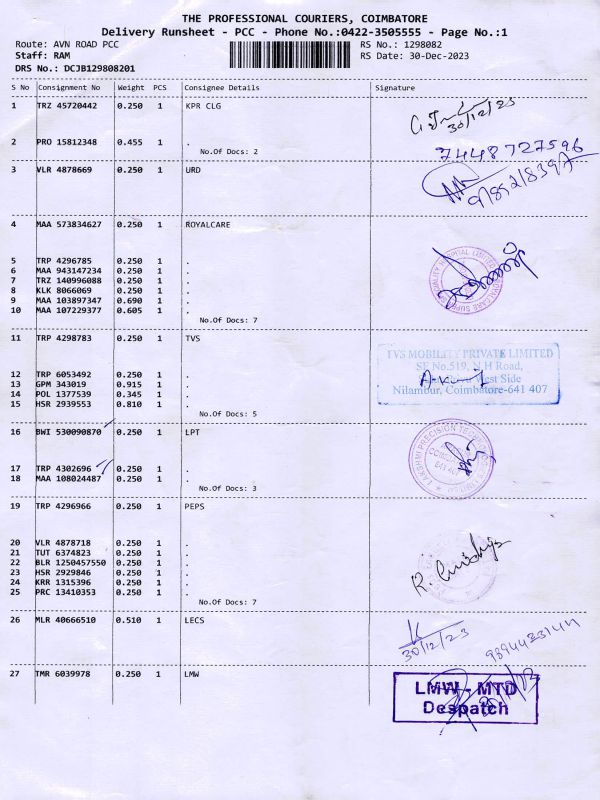 THE PROFESSIONAL COURIERS, COIMBATORE
Delivery Runsheet - PCC - Phone No.:0422-3505555 - Page No.:1
Route: AVN ROAD PCC
RS No.: 1298082
Staff: RAM
RS Date: 30-Dec-2023
DRS No.: DCJB129808201
S No Consignment No Weight PCS Consignee Details Signature
1 TRZ 45720442 0.250 1 KPR CLG
30/12/23
2 PRO 15812348 0.455 1 .
No.Of Docs: 2
7448727596
3 VLR 4878669 0.250 1 URD
4 MAA 573834627 0.250 1 ROYALCARE
5 TRP 4296785 0.250 1 .
6 MAA 943147234 0.250 1 .
7 TRZ 140996088 0.250 1 .
8 KLK 8066069 0.250 1 .
9 MAA 103897347 0.690 1 .
10 MAA 107229377 0.605 1 .
No.Of Docs: 7
11 TRP 4298783 0.250 1 TVS
TVS MOBILITY PRIVATE LIMITED
SF No.519, N.H Road,
West Side
Nilambur, Coimbatore-641 407
12 TRP 6053492 0.250 1 .
13 GPM 343019 0.915 1 .
14 POL 1377539 0.345 1 .
15 HSR 2939553 0.810 1 .
No.Of Docs: 5
16 BWI 530090870 0.250 1 LPT
LAKSHMI PRECISION
17 TRP 4302696 0.250 1 .
18 MAA 108024487 0.250 1 .
No.Of Docs: 3
19 TRP 4296966 0.250 1 PEPS
20 VLR 4878718 0.250 1 .
21 TUT 6374823 0.250 1 .
22 BLR 1250457550 0.250 1 .
23 HSR 2929846 0.250 1 .
24 KRR 1315396 0.250 1 .
25 PRC 13410353 0.250 1 .
No.Of Docs: 7
26 MLR 40666510 0.510 1 LECS
30/12/23
27 TMR 6039978 0.250 1 LMW
LMW - MTD
Despatch